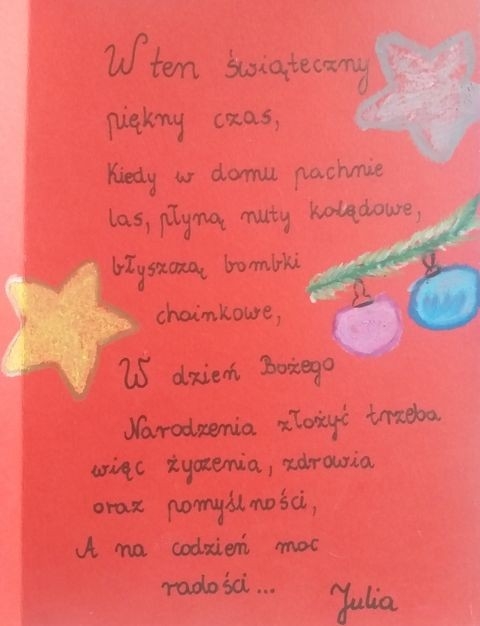 W ten świąteczny
piękny czas,
Kiedy w domu pachnie
las, płyną nuty kolędowe,
błyszczą bombki
choinkowe,
W dzień Bożego
Narodzenia złożyć trzeba
więc życzenia, zdrowia
oraz pomyślności,
A na codzień moc
radości...
Julia